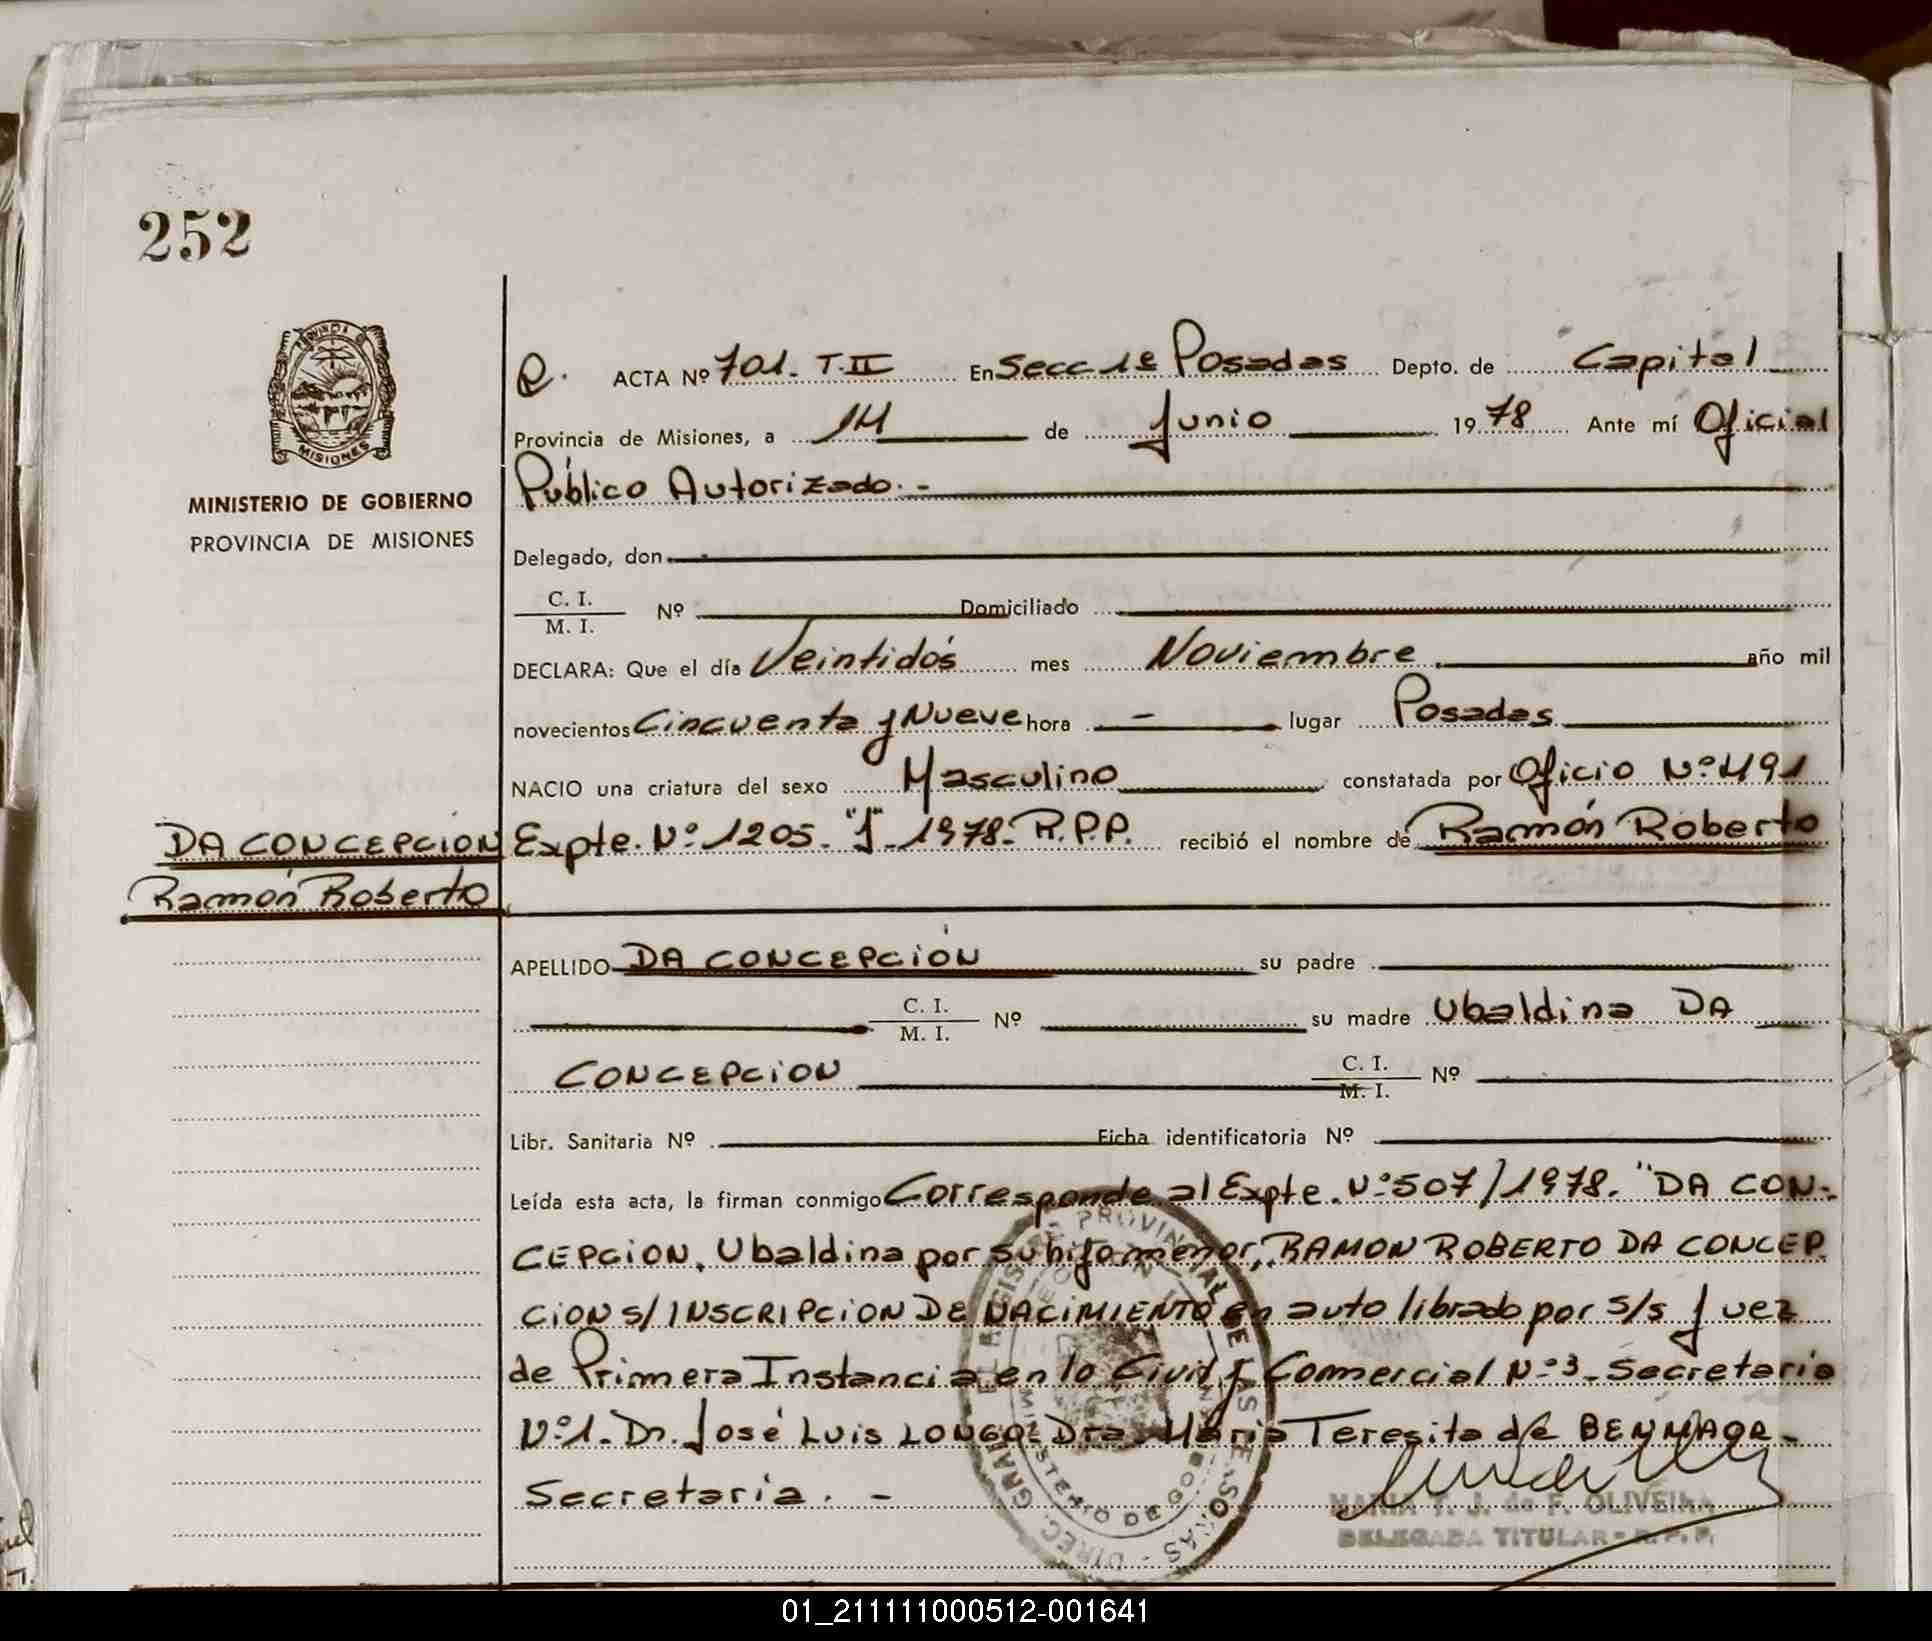 252
PROVINCIA DE
MISIONES
MINISTERIO DE GOBIERNO
PROVINCIA DE MISIONES
R. ACTA Nº 701. T.II En Secc 1ª Posadas Depto. de Capital
Provincia de Misiones, a 14 de Junio 1978 Ante mí Oficial
Público Autorizado.-
Delegado, don
C. I.
M. I. Nº Domiciliado
DECLARA: Que el día Veintidós mes Noviembre año mil
novecientos Cincuenta y Nueve hora - lugar Posadas
NACIO una criatura del sexo Masculino constatada por Oficio Nº 491
DA CONCEPCION
Ramón Roberto
Expte. Nº 1205. "J". 1978. R.P.P. recibió el nombre de Ramón Roberto
APELLIDO DA CONCEPCIÓN su padre
C. I.
M. I. Nº su madre Ubaldina DA
CONCEPCION C. I.
M. I. Nº
Libr. Sanitaria Nº Ficha identificatoria Nº
Leída esta acta, la firman conmigo Corresponde al Expte. Nº 507/1978. "DA CON-
CEPCION, Ubaldina por su hijo menor, RAMON ROBERTO DA CONCEP
CION S/INSCRIPCION DE NACIMIENTO en auto librado por S/S Juez
de Primera Instancia en lo Civil y Comercial Nº 3- Secretaria
Nº 1. Dr. José Luis LONGO- Dra. María Teresita de BENMAOR-
Secretaria. -
MARIA T. J. de F. OLIVEIRA
DELEGADA TITULAR - R. P. P.
DIREC. GRAL. DEL REGISTRO PROVINCIAL DE LAS PERSONAS
MINISTERIO DE GOB
01_211111000512-001641